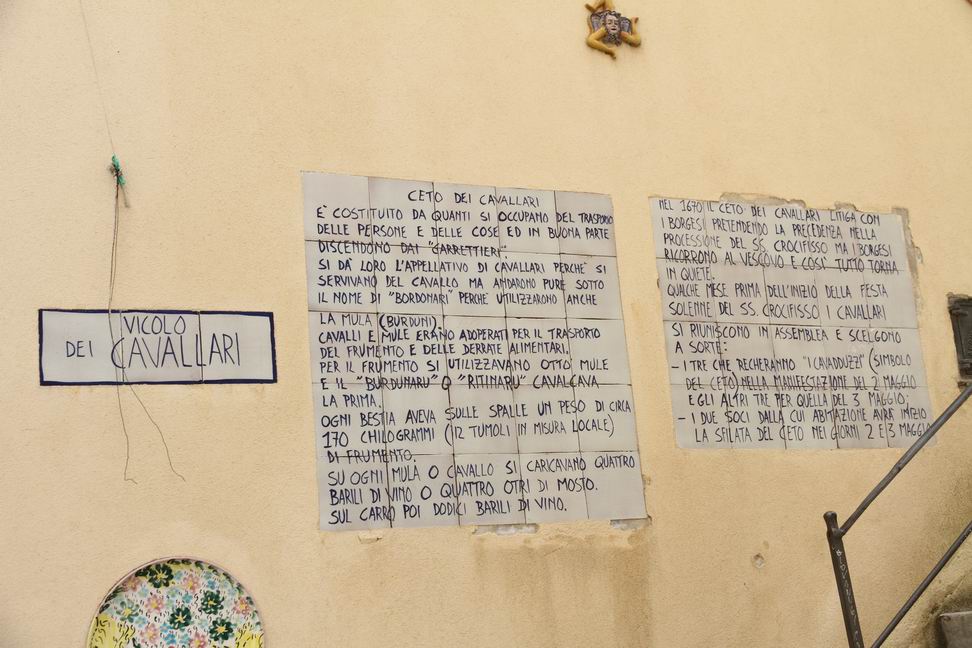 VICOLO
DEI CAVALLARI
CETO DEI CAVALLARI
È COSTITUITO DA QUANTI SI OCCUPANO DEL TRASPORTO
DELLE PERSONE E DELLE COSE ED IN BUONA PARTE
DISCENDONO DAI "CARRETTIERI".
SI DÀ LORO L'APPELLATIVO DI CAVALLARI PERCHÈ SI
SERVIVANO DEL CAVALLO MA ANDARONO PURE SOTTO
IL NOME DI "BORDONARI" PERCHÈ UTILIZZARONO ANCHE
LA MULA (BURDUNI)
CAVALLI E MULE ERANO ADOPERATI PER IL TRASPORTO
DEL FRUMENTO E DELLE DERRATE ALIMENTARI.
PER IL FRUMENTO SI UTILIZZAVANO OTTO MULE
E IL "BURDUNARU" O "RITINARU" CAVALCAVA
LA PRIMA.
OGNI BESTIA AVEVA SULLE SPALLE UN PESO DI CIRCA
170 CHILOGRAMMI (12 TUMOLI IN MISURA LOCALE)
DI FRUMENTO.
SU OGNI MULA O CAVALLO SI CARICAVANO QUATTRO
BARILI DI VINO O QUATTRO OTRI DI MOSTO.
SUL CARRO POI DODICI BARILI DI VINO.
NEL 1670 IL CETO DEI CAVALLARI LITIGA CON
I BORGESI PRETENDENDO LA PRECEDENZA NELLA
PROCESSIONE DEL SS. CROCIFISSO MA I BORGESI
RICORRONO AL VESCOVO E COSÌ TUTTO TORNA
IN QUIETE.
QUALCHE MESE PRIMA DELL'INIZIO DELLA FESTA
SOLENNE DEL SS. CROCIFISSO I CAVALLARI
SI RIUNISCONO IN ASSEMBLEA E SCELGONO
A SORTE:
- I TRE CHE RECHERANNO "I CAVADDUZZI" (SIMBOLO
DEL CETO) NELLA MANIFESTAZIONE DEL 2 MAGGIO
E GLI ALTRI TRE PER QUELLA DEL 3 MAGGIO;
- I DUE SOCI DALLA CUI ABITAZIONE AVRÀ INIZIO
LA SFILATA DEL CETO NEI GIORNI 2 E 3 MAGGIO